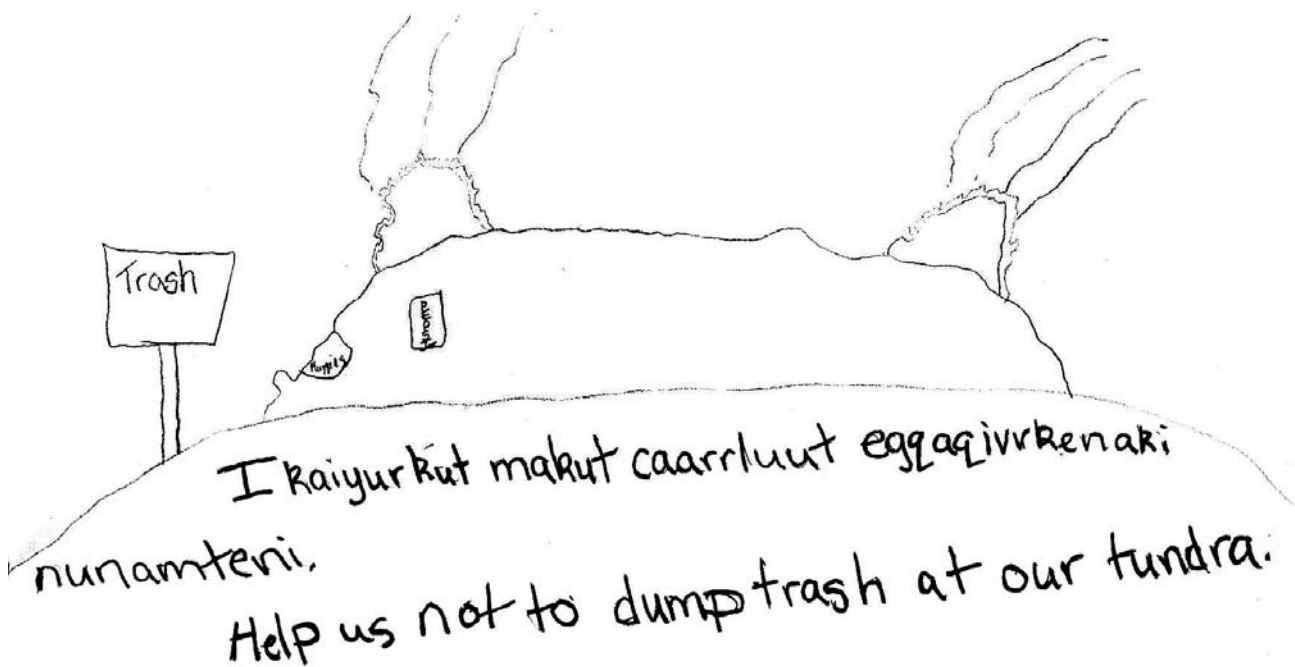 Trash
Huggies
Ikaiyurkut makut caarrluut eggaqivrkenaki
nunamteni.
Help us not to dump trash at our tundra.